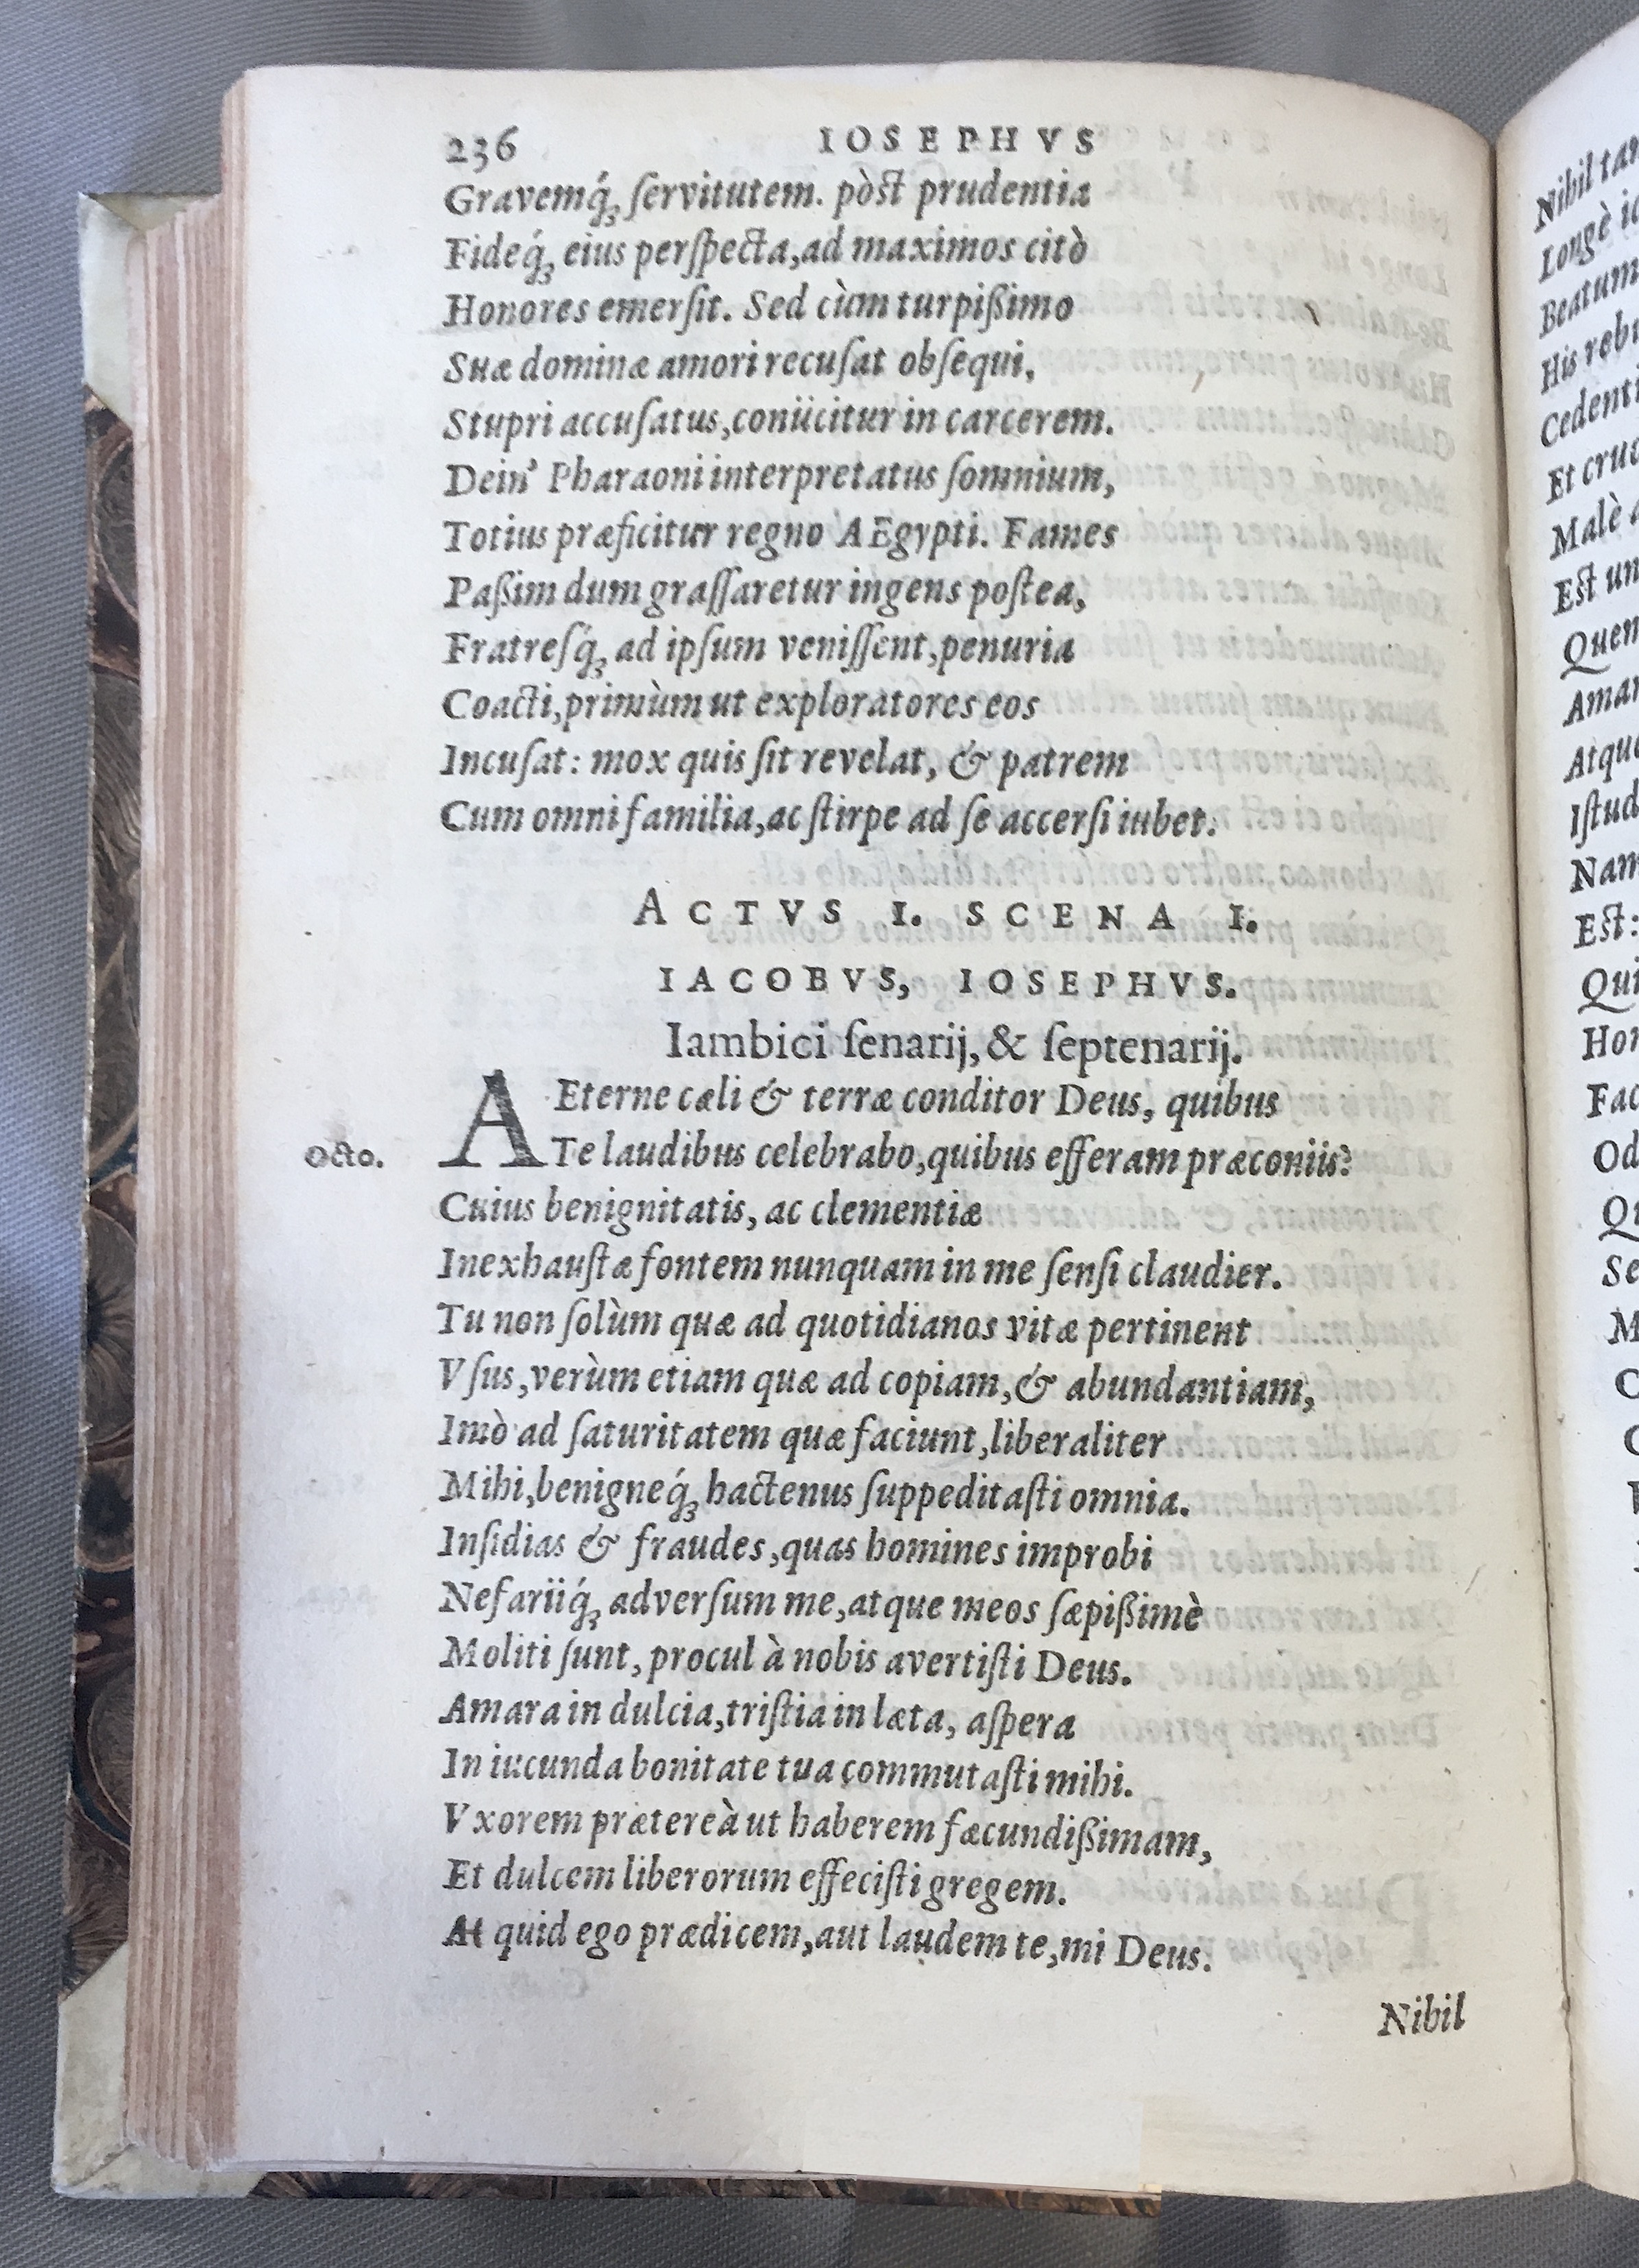 236 IOSEPHVS
Gravemq́ꝫ ſervitutem. pòst prudentia
Fideq́ꝫ eius perſpecta, ad maximos citò
Honores emerſit. Sed cùm turpiſsimo
Suæ dominæ amori recuſat obſequi,
Stupri accuſatus, coniicitur in carcerem.
Dein' Pharaoni interpretatus ſomnium,
Totius præficitur regno AEgypti. Fames
Paßim dum graſſaretur ingens poſtea,
Fratreſq́ꝫ ad ipſum veniſſent, penuria
Coacti, primùm ut exploratores eos
Incuſat: mox quis ſit revelat, & patrem
Cum omni familia, ac ſtirpe ad ſe accerſi iubet.
ACTVS I. SCENA I.
IACOBVS, IOSEPHVS.
Iambici ſenarij, & ſeptenarij.
AEterne cæli & terræ conditor Deus, quibus
Octo. Te laudibus celebrabo, quibus efferam præconiis?
Cuius benignitatis, ac clementiæ
Inexhauſtæ fontem nunquam in me ſenſi claudier.
Tu non ſolùm quæ ad quotidianos vitæ pertinent
Vſus, verùm etiam quæ ad copiam, & abundantiam,
Imò ad ſaturitatem quæ faciunt, liberaliter
Mihi, benigneq́ꝫ hactenus ſuppeditaſti omnia.
Inſidias & fraudes, quas homines improbi
Nefariiq́ꝫ adverſum me, atque meos ſæpißimè
Moliti ſunt, procul à nobis avertiſti Deus.
Amara in dulcia, triſtia in læta, aſpera
In iucunda bonitate tua commutaſti mihi.
Vxorem prætereà ut haberem fæcundißimam,
Et dulcem liberorum effeciſti gregem.
At quid ego prædicem, aut laudem te, mi Deus?
Nihil
Nihil
Longè
Beatum
His
Cedenti
Et
Malè
Est
Quem
Atque
Est: